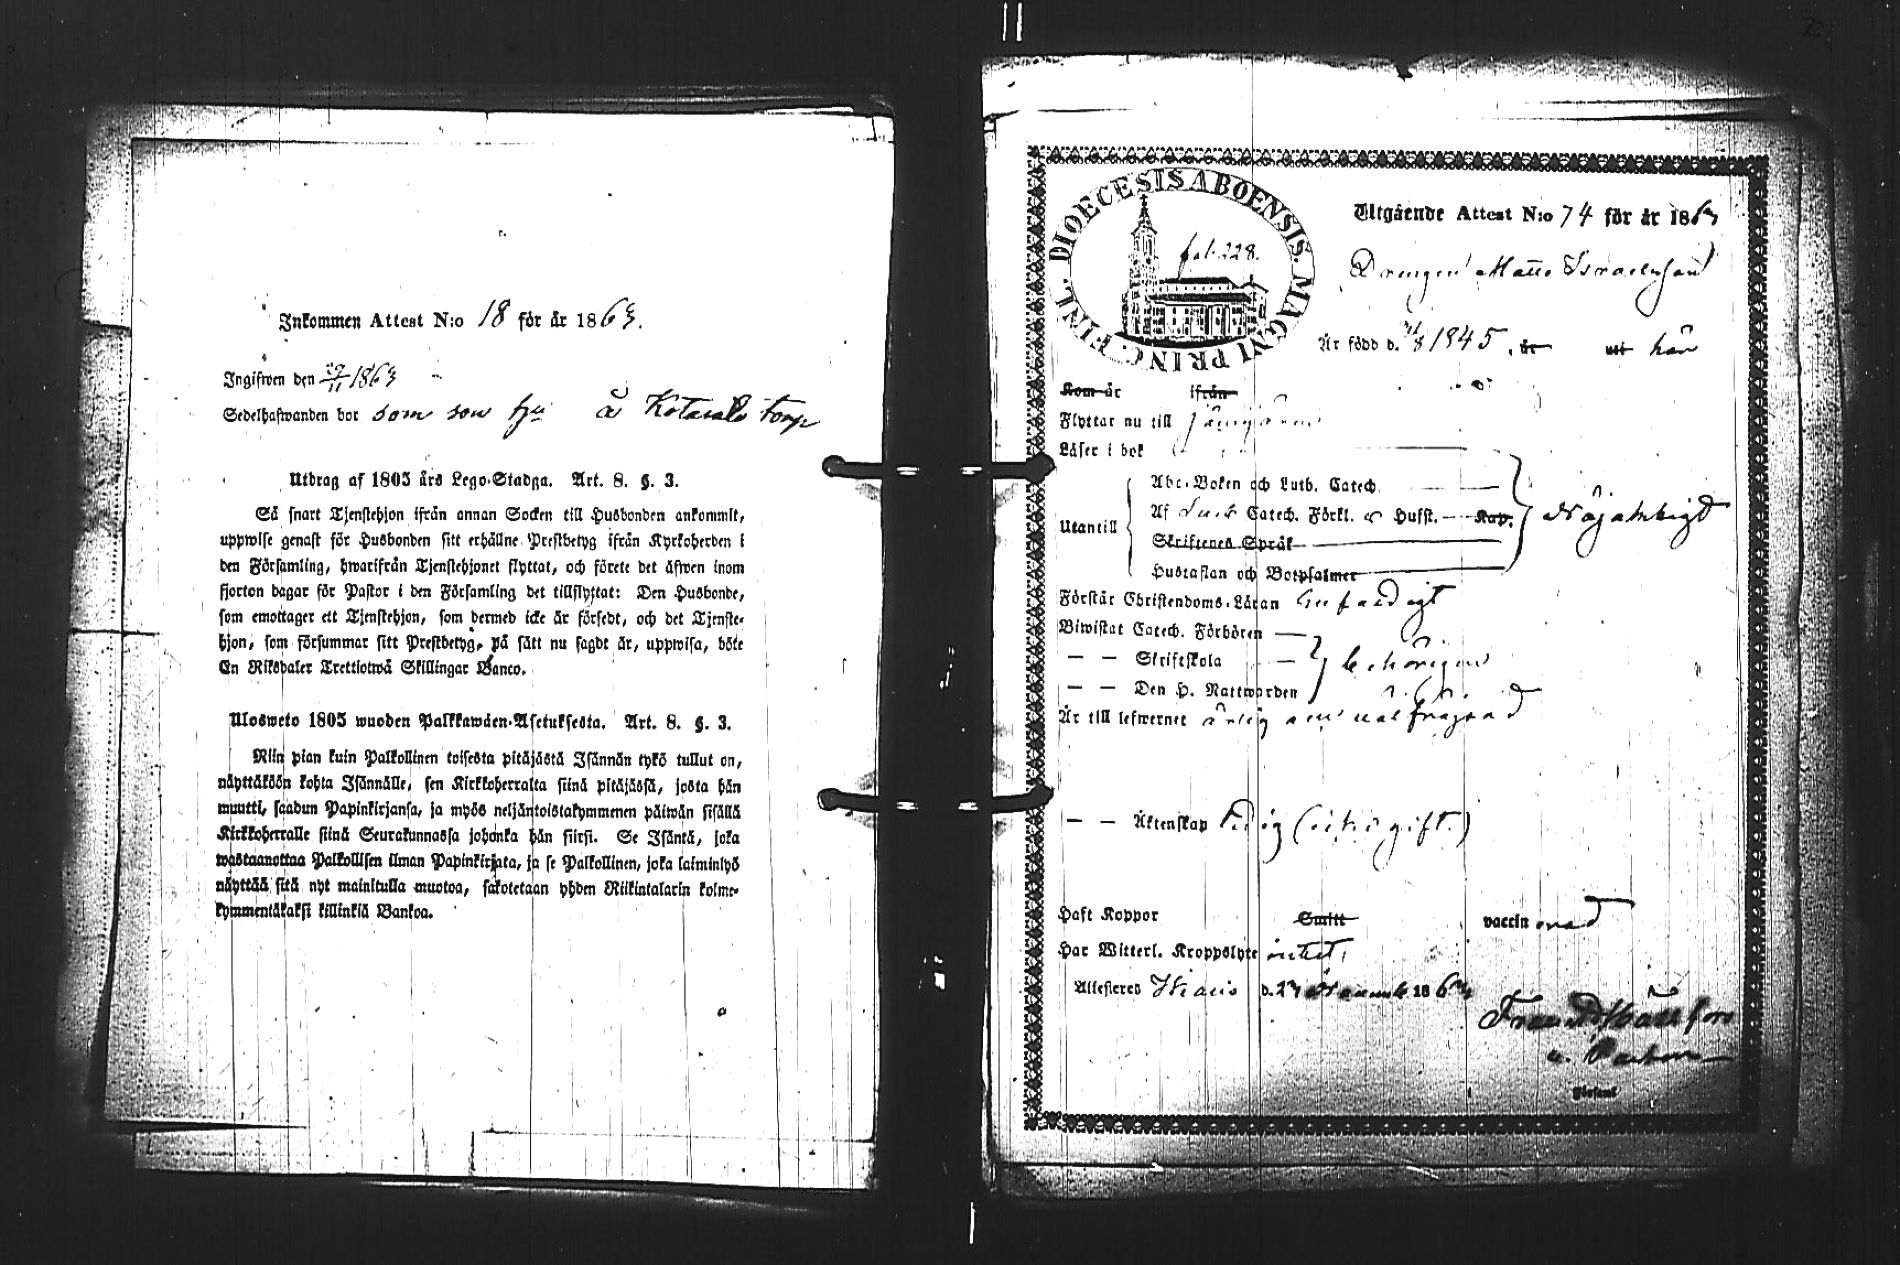 Inkommen Attest N:o 18 för år 1863.
Ingifwen den 29/11 1863
Sedelhafwanden bor som son å torp
Utdrag af 1805 års Lego-Stadga. Art. 8. §. 3.
Så snart Tjenstehjon ifrån annan Socken till Husbonden ankommit,
uppwise genast för Husbonden sitt erhållne Prestbetyg ifrån Kyrkoherden i
den Församling, hwarifrån Tjenstehjonet flyttat, och förete det äfwen inom
fjorton dagar för Pastor i den Församling det tillflyttat: Den Husbonde,
som emottager ett Tjenstehjon, som dermed icke är försedt, och det Tjenste-
hjon, som försummar sitt Prestbetyg, på sätt nu sagdt är, uppwisa, böte
En Riksdaler Trettiotwå Skillingar Banco.
Ulosweto 1805 wuoden Palkkawäen-Asetuksesta. Art. 8. §. 3.
Niin pian kuin Palkollinen toisesta pitäjästä Isännän tykö tullut on,
näyttäköön kohta Isännälle, sen Kirkkoherralta siinä pitäjässä, josta hän
muutti, saadun Papinkirjansa, ja myös neljäntoistakymmenen päiwän sisällä
Kirkkoherralle siinä Seurakunnassa johonka hän siirsi. Se Isäntä, joka
wastaanottaa Palkollisen ilman Papinkirjata, ja se Palkollinen, joka laiminlyö
näyttää sitä nyt mainitulla muotoa, sakotetaan yhden Riikintalarin kolme-
kymmentäkaksi killinkiä Bankoa.
DIOECESIS ABOENSIS. MAGNI PRINC. FINL.
fol. 228.
Utgående Attest N:o 74 för år 1863
Drengen Matts Israelsson
Är född d. 1845, är utt här
Kom år ifrån
Flyttar nu till
Läser i bok
Abc-Boken och Luth. Catech.
Utantill
Af Luth. Catech. Förkl. o Hufst. Kap.
Skriftenes Språk
Hustaflan och Botpsalmer
Nöjaktigt
Förstår Christendoms-Läran
Biwistat Catech. Förhören
— — Skriftskola behörigen
— — Den H. Nattwarden
Är till lefwernet ärlig
— — Äktenskap ledig (icke gift.)
Haft Koppor Smitt vaccinerad
Har Witterl. Kroppslyte intet,
Attesteres d. 23 1863